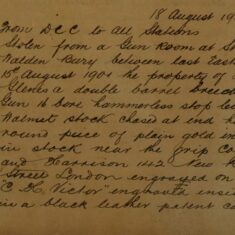 18 August 19
From DCC to all Stations
Stolen from a Gun Room at S
Walden Bury between last East
15th August 1901 the property of
Glenes a double barrel breech
Gun 16 bore hammerless stop le
Walnut stock chased at end h
round piece of plain gold in
in stock near the grip Co
and Harrison 142 New
Street London engraved on
"C H Victor" engraved insi
in a black leather patent ca